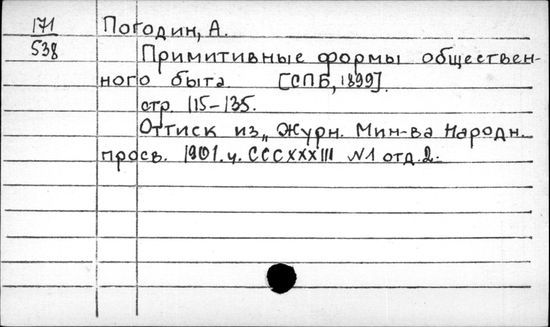 171 Погодин, А.
538 Примитивные формы обществен-
ного быта [СПБ, 1899].
стр. 115-135.
Оттиск из „Журн. Мин-ва Народн.
просв. 1901. ч. CCCXXXIII №1 отд. 2.